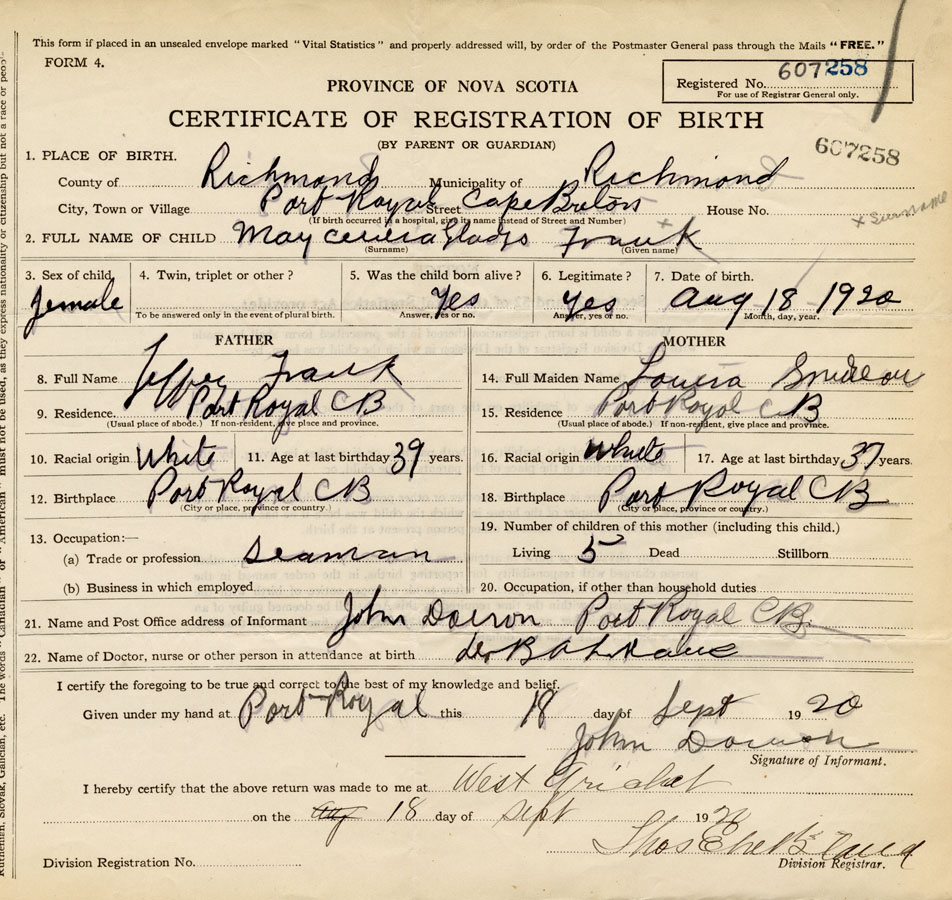 This form if placed in an unsealed envelope marked "Vital Statistics" and properly addressed will, by order of the Postmaster General pass through the Mails "FREE."
FORM 4.
Registered No. 607258
For use of Registrar General only.
PROVINCE OF NOVA SCOTIA
CERTIFICATE OF REGISTRATION OF BIRTH
(BY PARENT OR GUARDIAN)
607258
1. PLACE OF BIRTH.
County of Richmond Municipality of Richmond
City, Town or Village Port Royal Street Cape Breton House No.
(If birth occurred in a hospital, give its name instead of Street and Number)
x Surname
2. FULL NAME OF CHILD May Gladys Frank
(Surname) (Given name)
3. Sex of child female
4. Twin, triplet or other?
To be answered only in the event of plural birth.
5. Was the child born alive? Yes
Answer, yes or no.
6. Legitimate? Yes
Answer, yes or no.
7. Date of birth. Aug 18 1920
Month, day, year.
FATHER
8. Full Name Jeffrey Frank
9. Residence. Port Royal CB
(Usual place of abode.) If non-resident, give place and province.
10. Racial origin White 11. Age at last birthday 39 years.
12. Birthplace Port Royal CB
(City or place, province or country.)
13. Occupation:—
(a) Trade or profession Seaman
(b) Business in which employed
MOTHER
14. Full Maiden Name Louisa
15. Residence Port Royal CB
(Usual place of abode.) If non-resident, give place and province.
16. Racial origin White 17. Age at last birthday 37 years.
18. Birthplace Port Royal CB
(City or place, province or country.)
19. Number of children of this mother (including this child.)
Living 5 Dead Stillborn
20. Occupation, if other than household duties
21. Name and Post Office address of Informant John Doiron Port Royal CB.
22. Name of Doctor, nurse or other person in attendance at birth
I certify the foregoing to be true and correct to the best of my knowledge and belief.
Given under my hand at Port Royal this 18 day of Sept 1920
John Doiron
Signature of Informant.
I hereby certify that the above return was made to me at West Arichat
on the Aug 18 day of Sept 1920
Thos
Division Registration No. Division Registrar.